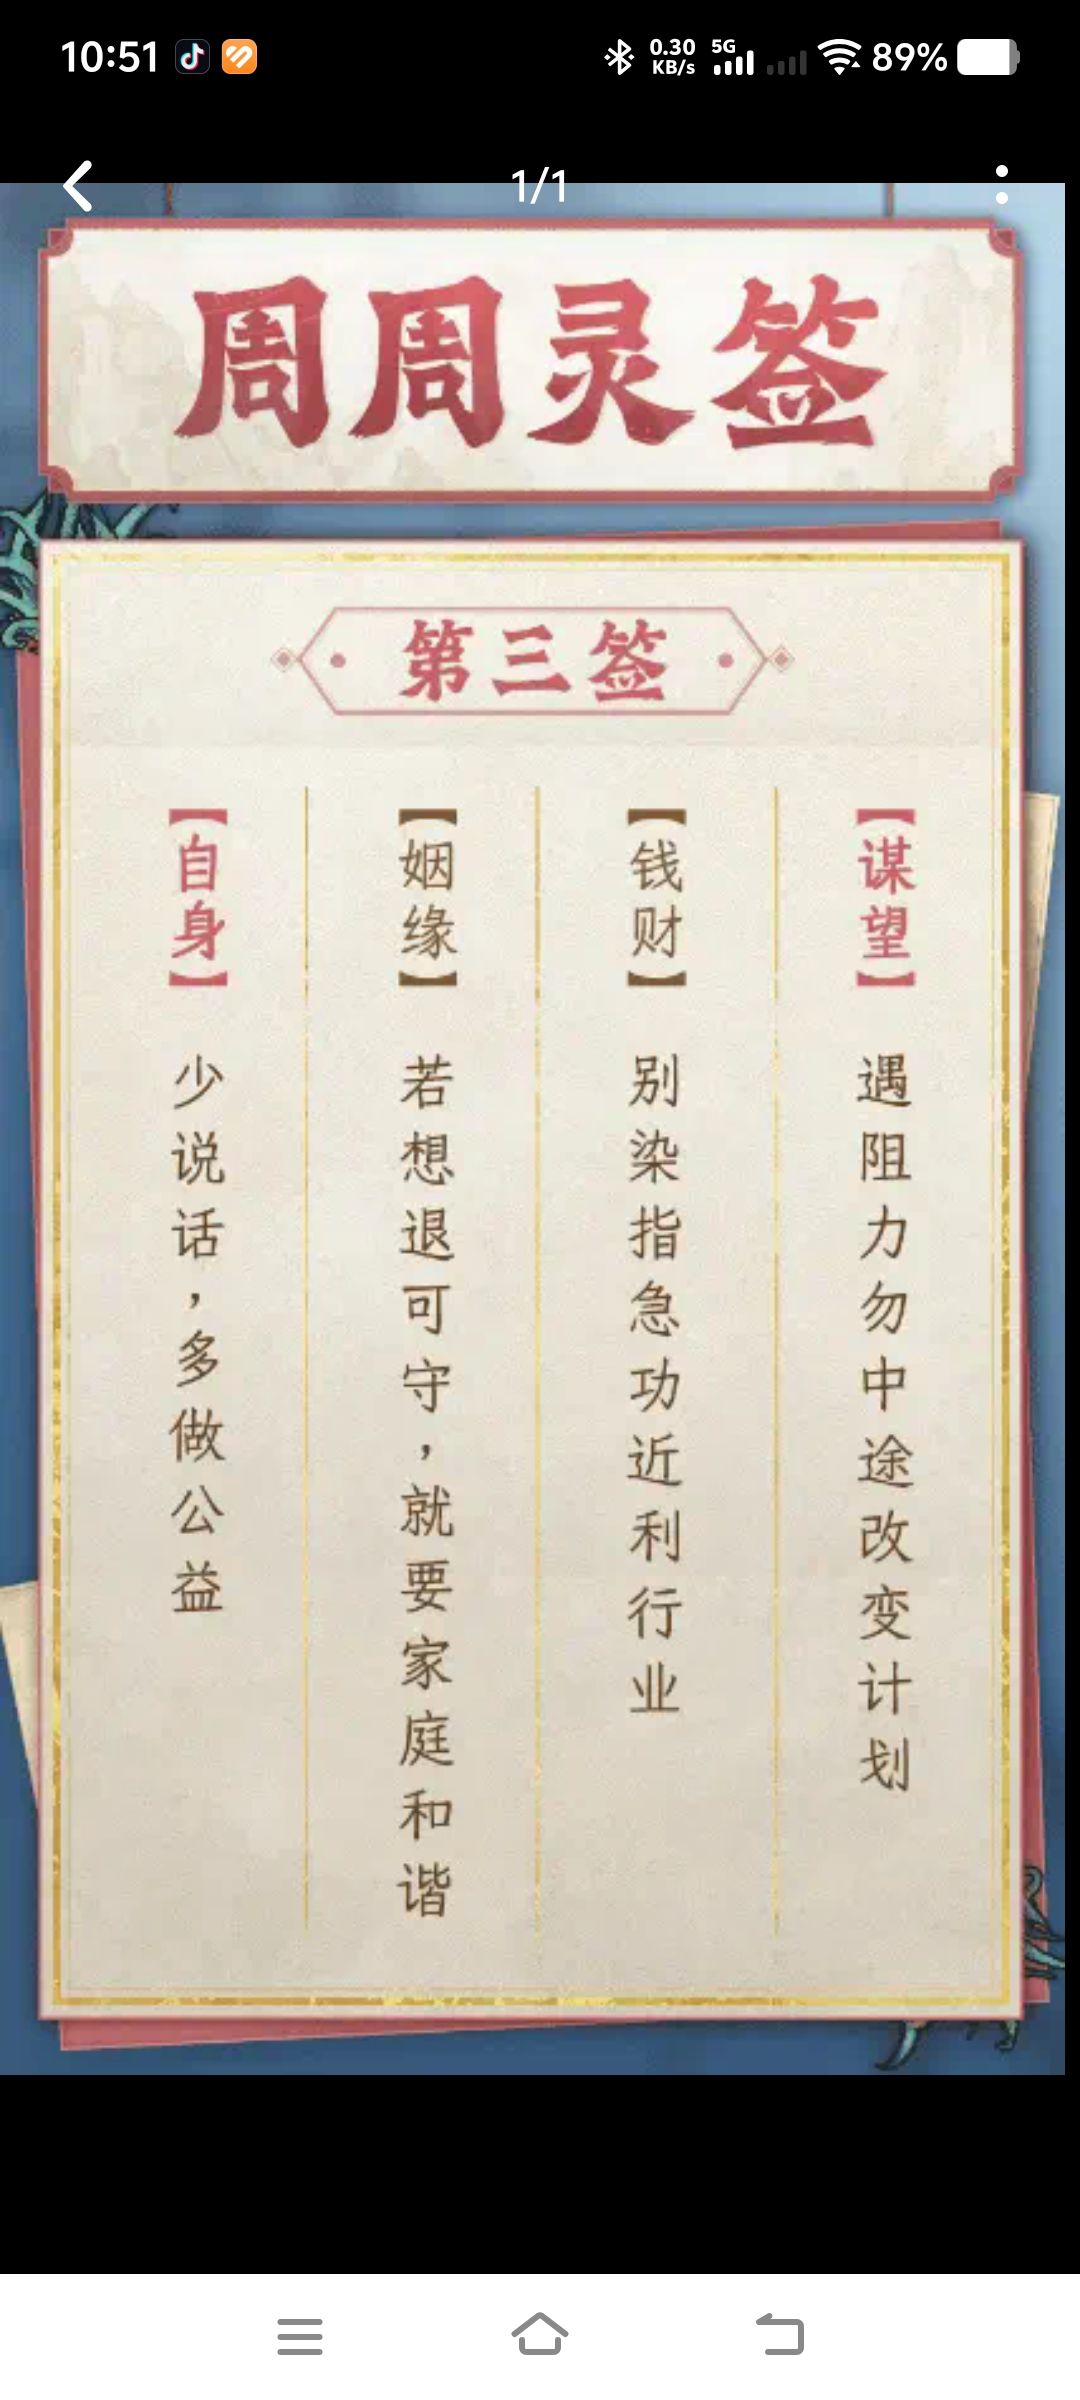 10:51
0.30 KB/s
5G
89%
1/1
周周灵签
第三签
【谋望】遇阻力勿中途改变计划
【钱财】别染指急功近利行业
【姻缘】若想退可守，就要家庭和谐
【自身】少说话，多做公益